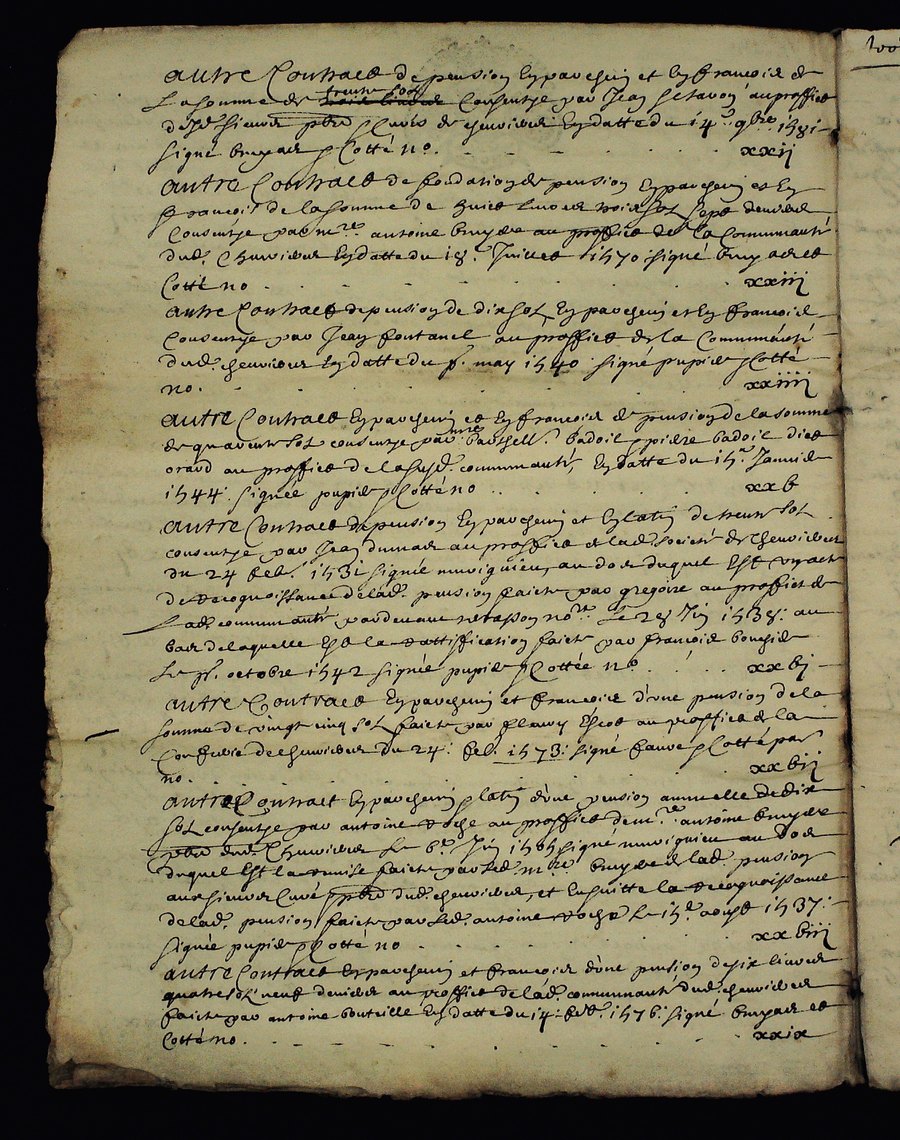 autre Contract de pension En parchemin et En francois de
La somme de trente sols Consentye par Jean Setavon au proffict
desd. sieurs pbres & Curés de chenviers En datte du 14e. 9bre. 1581
signé bruyas & Cotté no. xxij
autre Contract de fondation de pension En parchemin et En
francois de la somme de huict livres trois sols sept deniers
Consentye par mre. antoine bruyas au proffict de la Communauté
dud. Chenviers En datte du 18e. Juillet 1570 signé bruyas et
Cotté no xxiij
autre Contract de pension de dix sols En parchemin et En francois
Consentye par Jean fontanel au proffict de la Communauté
dud. chenviers En datte du p. may 1540 signé pupier & Cotté
no. xxiiij
autre Contract En parchemin et En françois de pension de la somme
de quarente sols consentye par mre barthell. badoil & pierre badoil dict
orard au proffict de la susd. communauté En datte du 15e. Janvier
1544. signée pupier & Cotté no xxb
autre Contract de pension En parchemin et En latin de trente sols
consentye par Jean dumas au proffict de lad. societé de Chenviers
du 24 feb. 1531 signée muviguieu, au dos duquel Est un acte
de Recognoissance de lad. pension faicte par gregoire au proffict de
Lad. communauté pardevant retasson nore. Le 28 Jin 1538: au
bas de laquelle Est la Rattification faicte par francois bouchier
Le p. octobre 1542 signée pupier & Cottée no. xxbj
autre Contract En parchemin et francois d'une pension de la
somme de vingt cinq sols faicte par fleury Escot au proffict de la
Confrerie de Chenviers du 24. feb. 1573. signé faure & Cotté par
no. xxbij
autre Contract En parchemin & latin d'une pension annuelle de dix
sols consentye par antoine Roche au proffict de mre. antoine bruyas
pbre dud. Chenviers Le 6e. Jin 1565 signé muviguieu au dos
duquel Est la remise faicte par led. mre. bruyas de lad. pension
aux sieurs Curé & pbres dud. chenviers, et Ensuitte la Recognoissance
de lad. pension faicte par led. antoine Roche Le 15e. aoust 1537.
signée pupier & Cotté no xxbiij
autre Contract En parchemin et francois d'une pension de six livres
quatre sols neuf deniers au proffict de lad. communauté dud. chenviers
faicte par antoine bouteille En datte du 14. feb. 1576. signé bruyas et
Cotté no. xxix